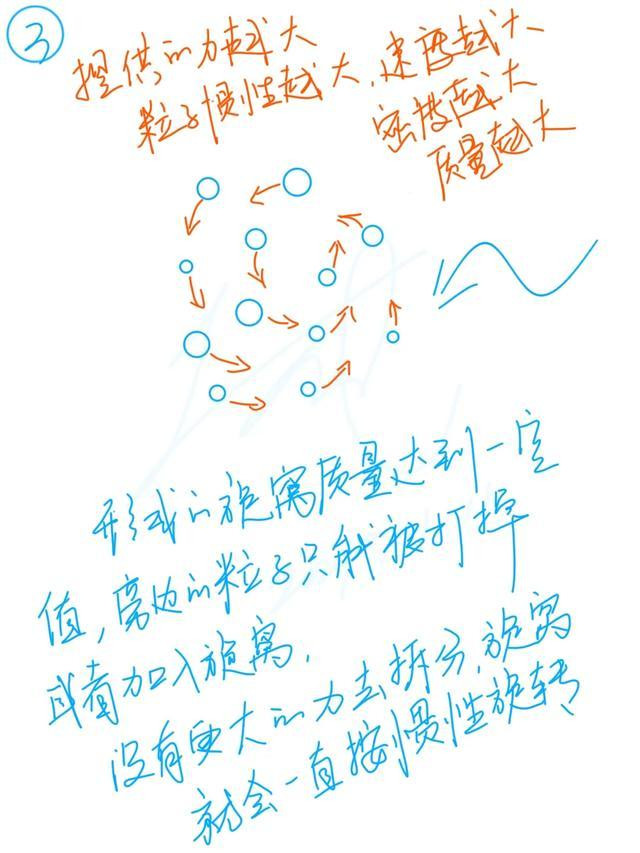 3
提供的力越大
粒子惯性越大,速度越大
密度越大
质量越大
形成的旋窝质量达到一定
值,旁边的粒子只能被打掉
或者加入旋窝.
没有更大的力去拆分,旋窝
就会一直按惯性旋转